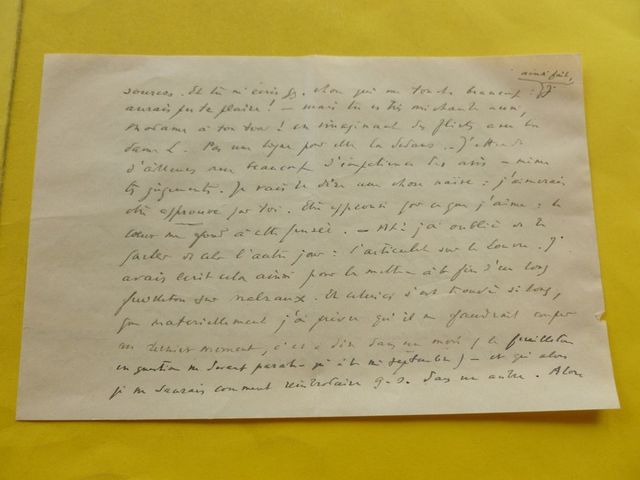 ainsi fait,
sources. Et tu m'écris qq. chose qui me touche beaucoup : "j'
aurais pu te plaire" ! — mais tu es très méchante aussi,
Madame à ton tour ! en imaginant des flirts avec la
dame L. Pas une ligne pour elle là-dedans. J'attends
d'ailleurs avec beaucoup d'impatience tes avis — même
tes jugements. Je vais te dire une chose naïve : j'aimerais
être approuvé par toi. Être approuvé par ce que j'aime : le
cœur me fond à cette pensée. — Ah ! j'ai oublié de te
parler de cela l'autre jour : l'articulet sur le Louvre. J'
avais écrit cela ainsi pour le mettre à la fin d'un long
feuilleton sur Malraux. Et celui-ci s'est trouvé si long,
que matériellement j'ai prévu qu'il me faudrait couper
au dernier moment, c'est à dire dans un mois (le feuilleton
en question ne devant paraître qu'à la mi septembre) — et qu'alors
je ne saurais comment réintroduire q. s. dans un autre. Alors